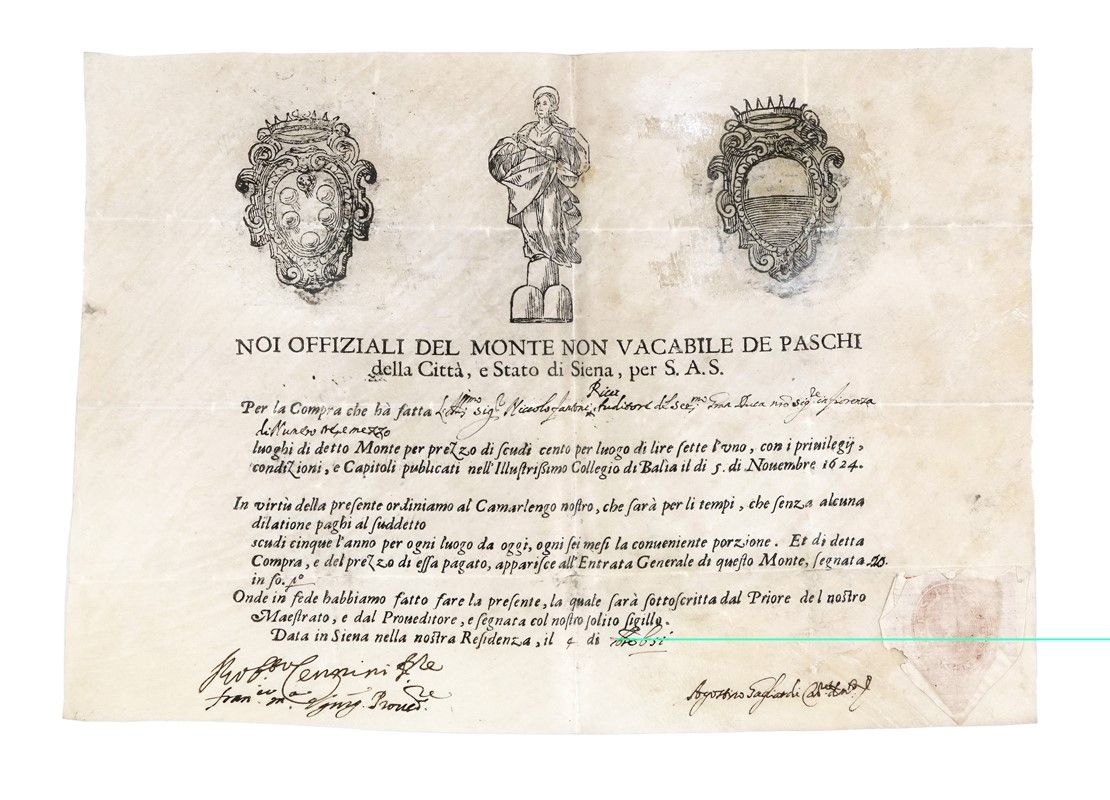 NOI OFFIZIALI DEL MONTE NON VACABILE DE PASCHI
della Città, e Stato di Siena, per S. A. S.
Per la Compra che hà fatta Niccolo Auditore del
di Numero tre e mezzo
luoghi di detto Monte per prezzo di scudi cento per luogo di lire sette l'vno, con i priuilegij,
condizioni, e Capitoli publicati nell'Illustrissimo Collegio di Balìa il dì 5. di Nouembre 1624.
In virtù della presente ordiniamo al Camarlengo nostro, che sarà per li tempi, che senza alcuna
dilatione paghi al suddetto
scudi cinque l'anno per ogni luogo da oggi, ogni sei mesi la conueniente porzione. Et di detta
Compra, e del prezzo di essa pagato, apparisce all'Entrata Generale di questo Monte, segnata
in fo.
Onde in fede habbiamo fatto fare la presente, la quale sarà sottoscritta dal Priore del nostro
Maestrato, e dal Proueditore, e segnata col nostro solito sigillo.
Data in Siena nella nostra Residenza, il 4 di